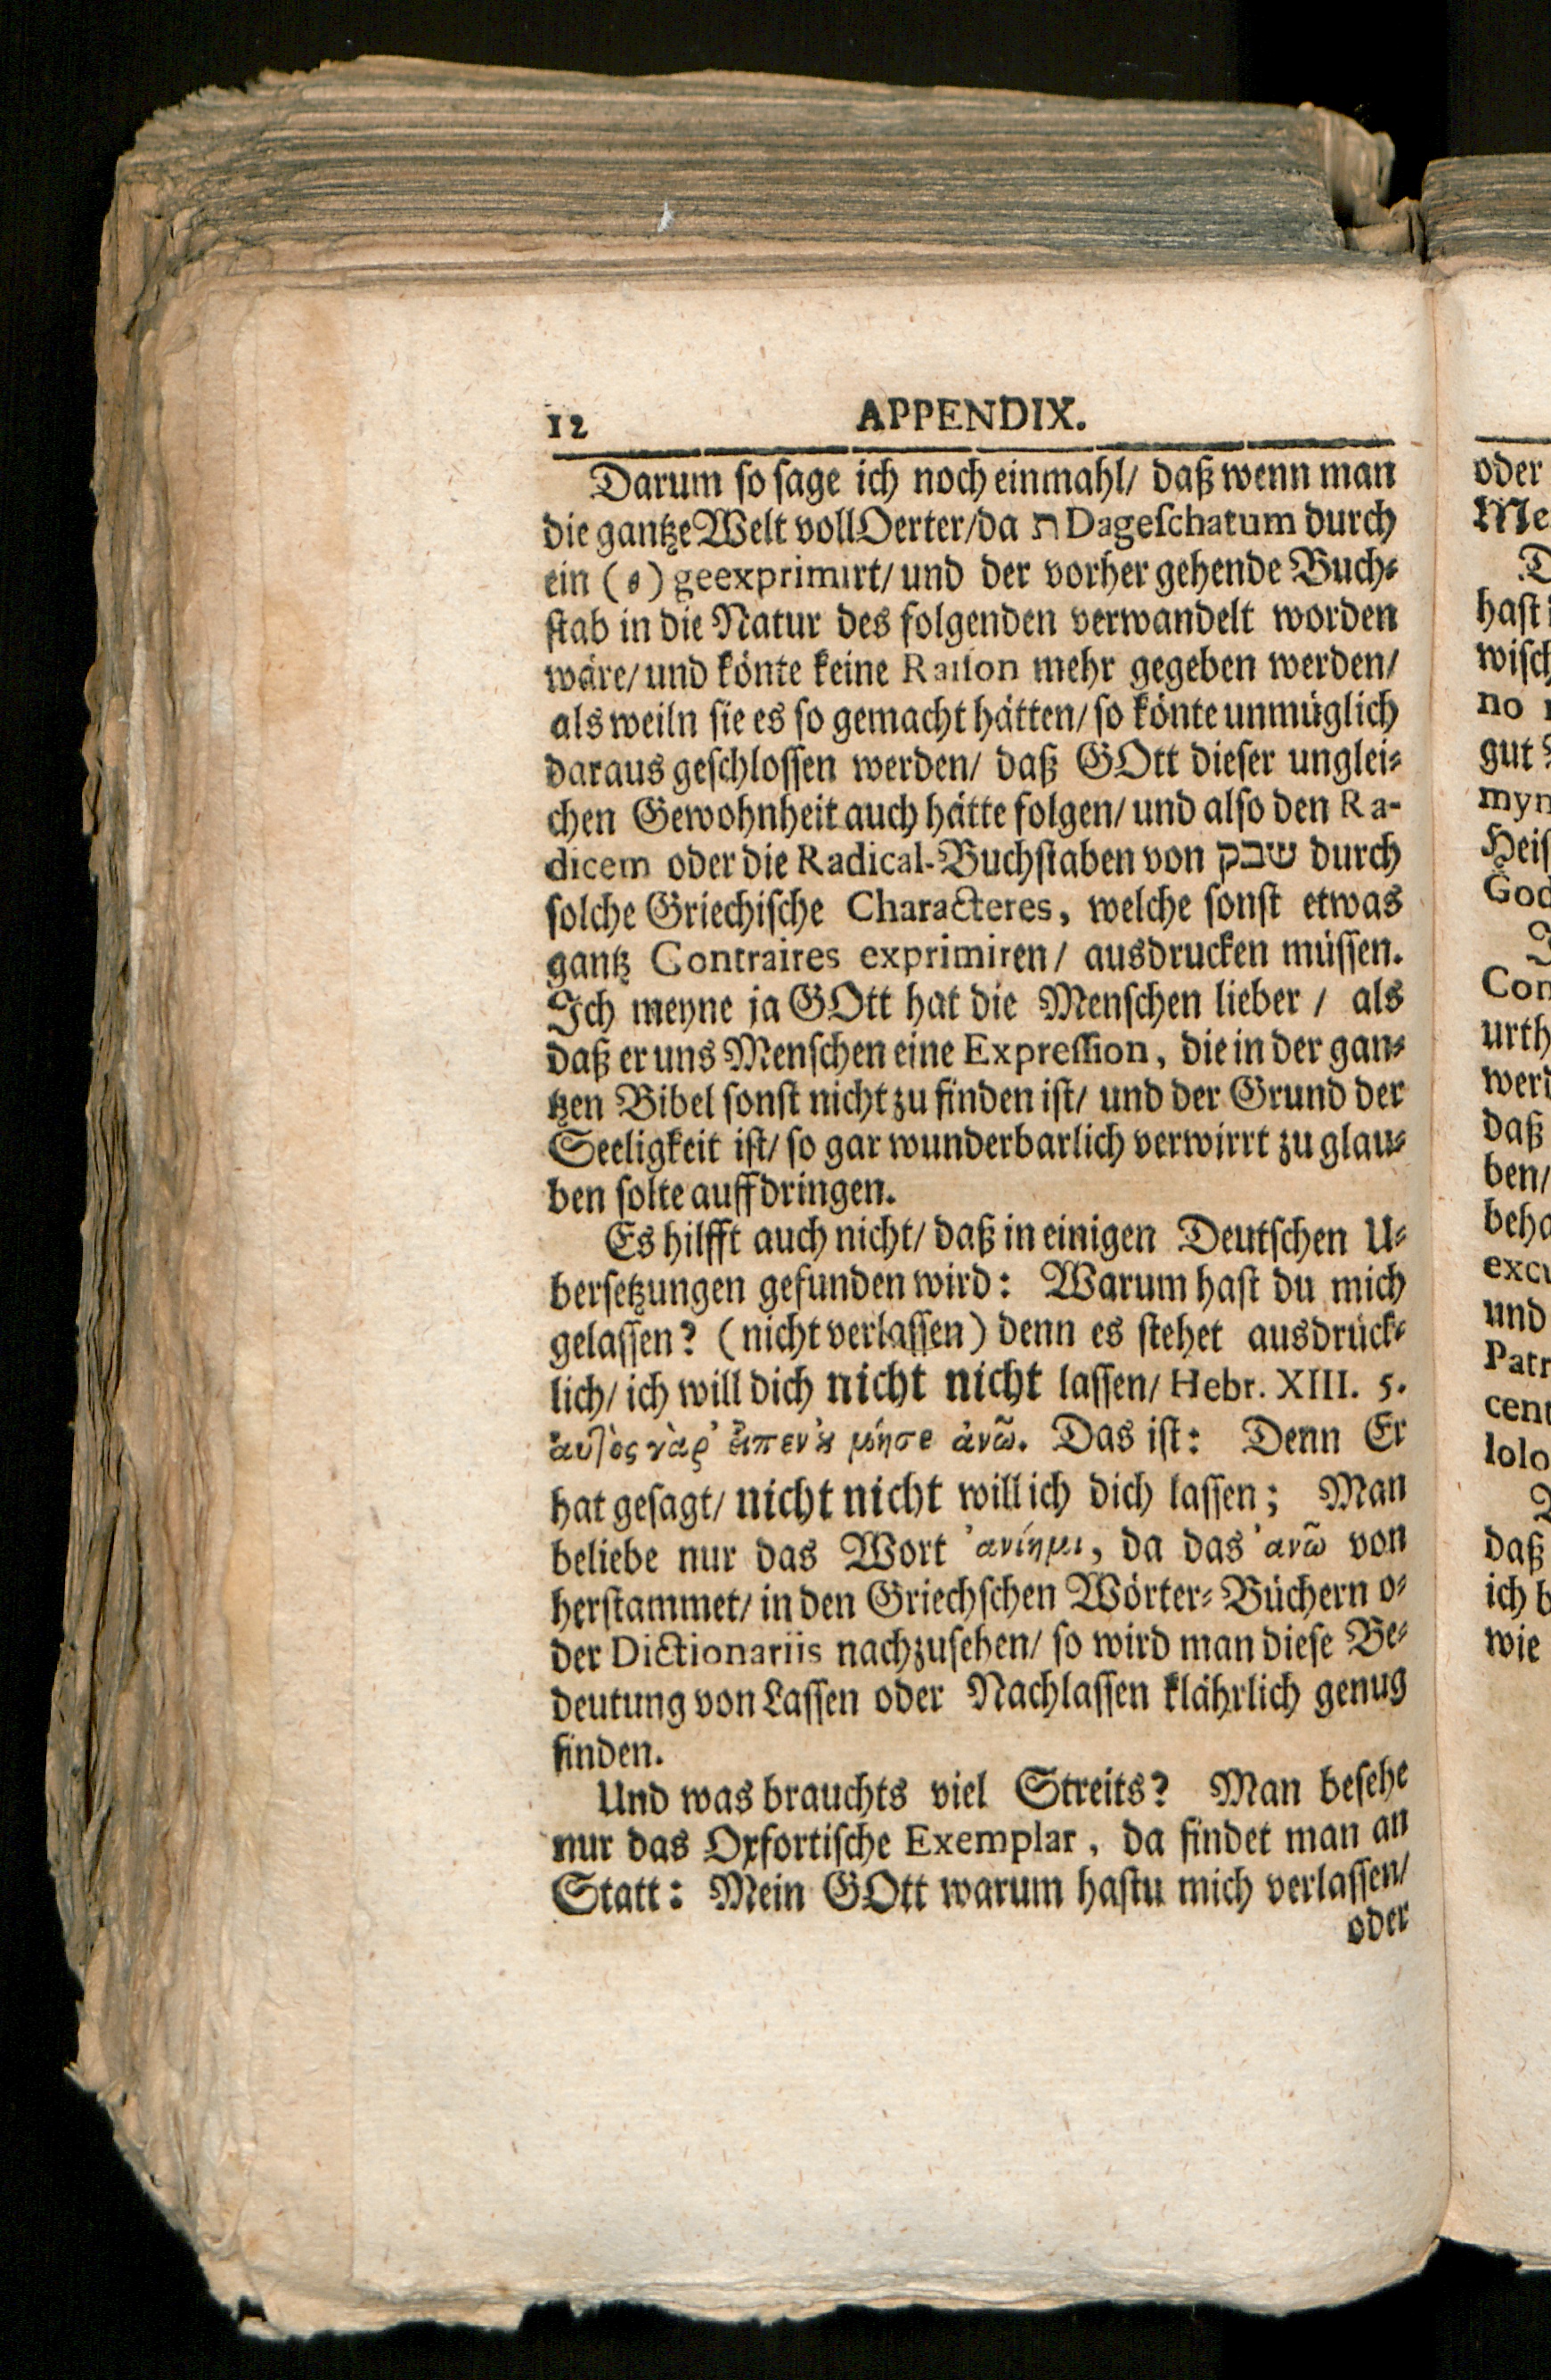 12 APPENDIX.
Darum ſo ſage ich noch einmahl/ daß wenn man
die gantze Welt voll Oerter/da ת Dageſchatum durch
ein (θ) geexprimirt/ und der vorher gehende Buch⸗
ſtab in die Natur des folgenden verwandelt worden
wäre/ und könte keine Raiſon mehr gegeben werden/
als weiln ſie es ſo gemacht hätten/ ſo könte unmüglich
daraus geſchloſſen werden/ daß GOtt dieſer unglei⸗
chen Gewohnheit auch hätte folgen/ und alſo den Ra-
dicem oder die Radical-Buchſtaben von שבק durch
ſolche Griechiſche Characteres, welche ſonſt etwas
gantz Contraires exprimiren/ ausdrucken müſſen.
Ich meyne ja GOtt hat die Menſchen lieber / als
daß er uns Menſchen eine Expreſſion, die in der gan⸗
tzen Bibel ſonſt nicht zu finden iſt/ und der Grund der
Seeligkeit iſt/ ſo gar wunderbarlich verwirrt zu glau⸗
ben ſolte auffdringen.
Es hilfft auch nicht/ daß in einigen Deutſchen U⸗
berſetzungen gefunden wird: Warum haſt du mich
gelaſſen? (nicht verlaſſen) denn es ſtehet ausdrück⸗
lich/ ich will dich nicht nicht laſſen/ Hebr. XIII. 5.
ἀυτὸς γὰρ ἔιπεν ȣ μήσε ἀνῶ. Das iſt: Denn Er
hat geſagt/ nicht nicht will ich dich laſſen; Man
beliebe nur das Wort ἀνίημι, da das ἀνῶ von
herſtammet/ in den Griechſchen Wörter⸗Büchern o⸗
der Dictionariis nachzuſehen/ ſo wird man dieſe Be⸗
deutung von Laſſen oder Nachlaſſen klährlich genug
finden.
Und was brauchts viel Streits? Man beſehe
nur das Oxfortiſche Exemplar, da findet man an
Statt: Mein GOtt warum haſtu mich verlaſſen/
oder
oder
Me
D
haſt i
wiſch
no
gut
myn
Heiſ
God
J
Con
urth
werd
daß
ben/
beha
excu
und
Patr
cent
lolo
daß
ich b
wie